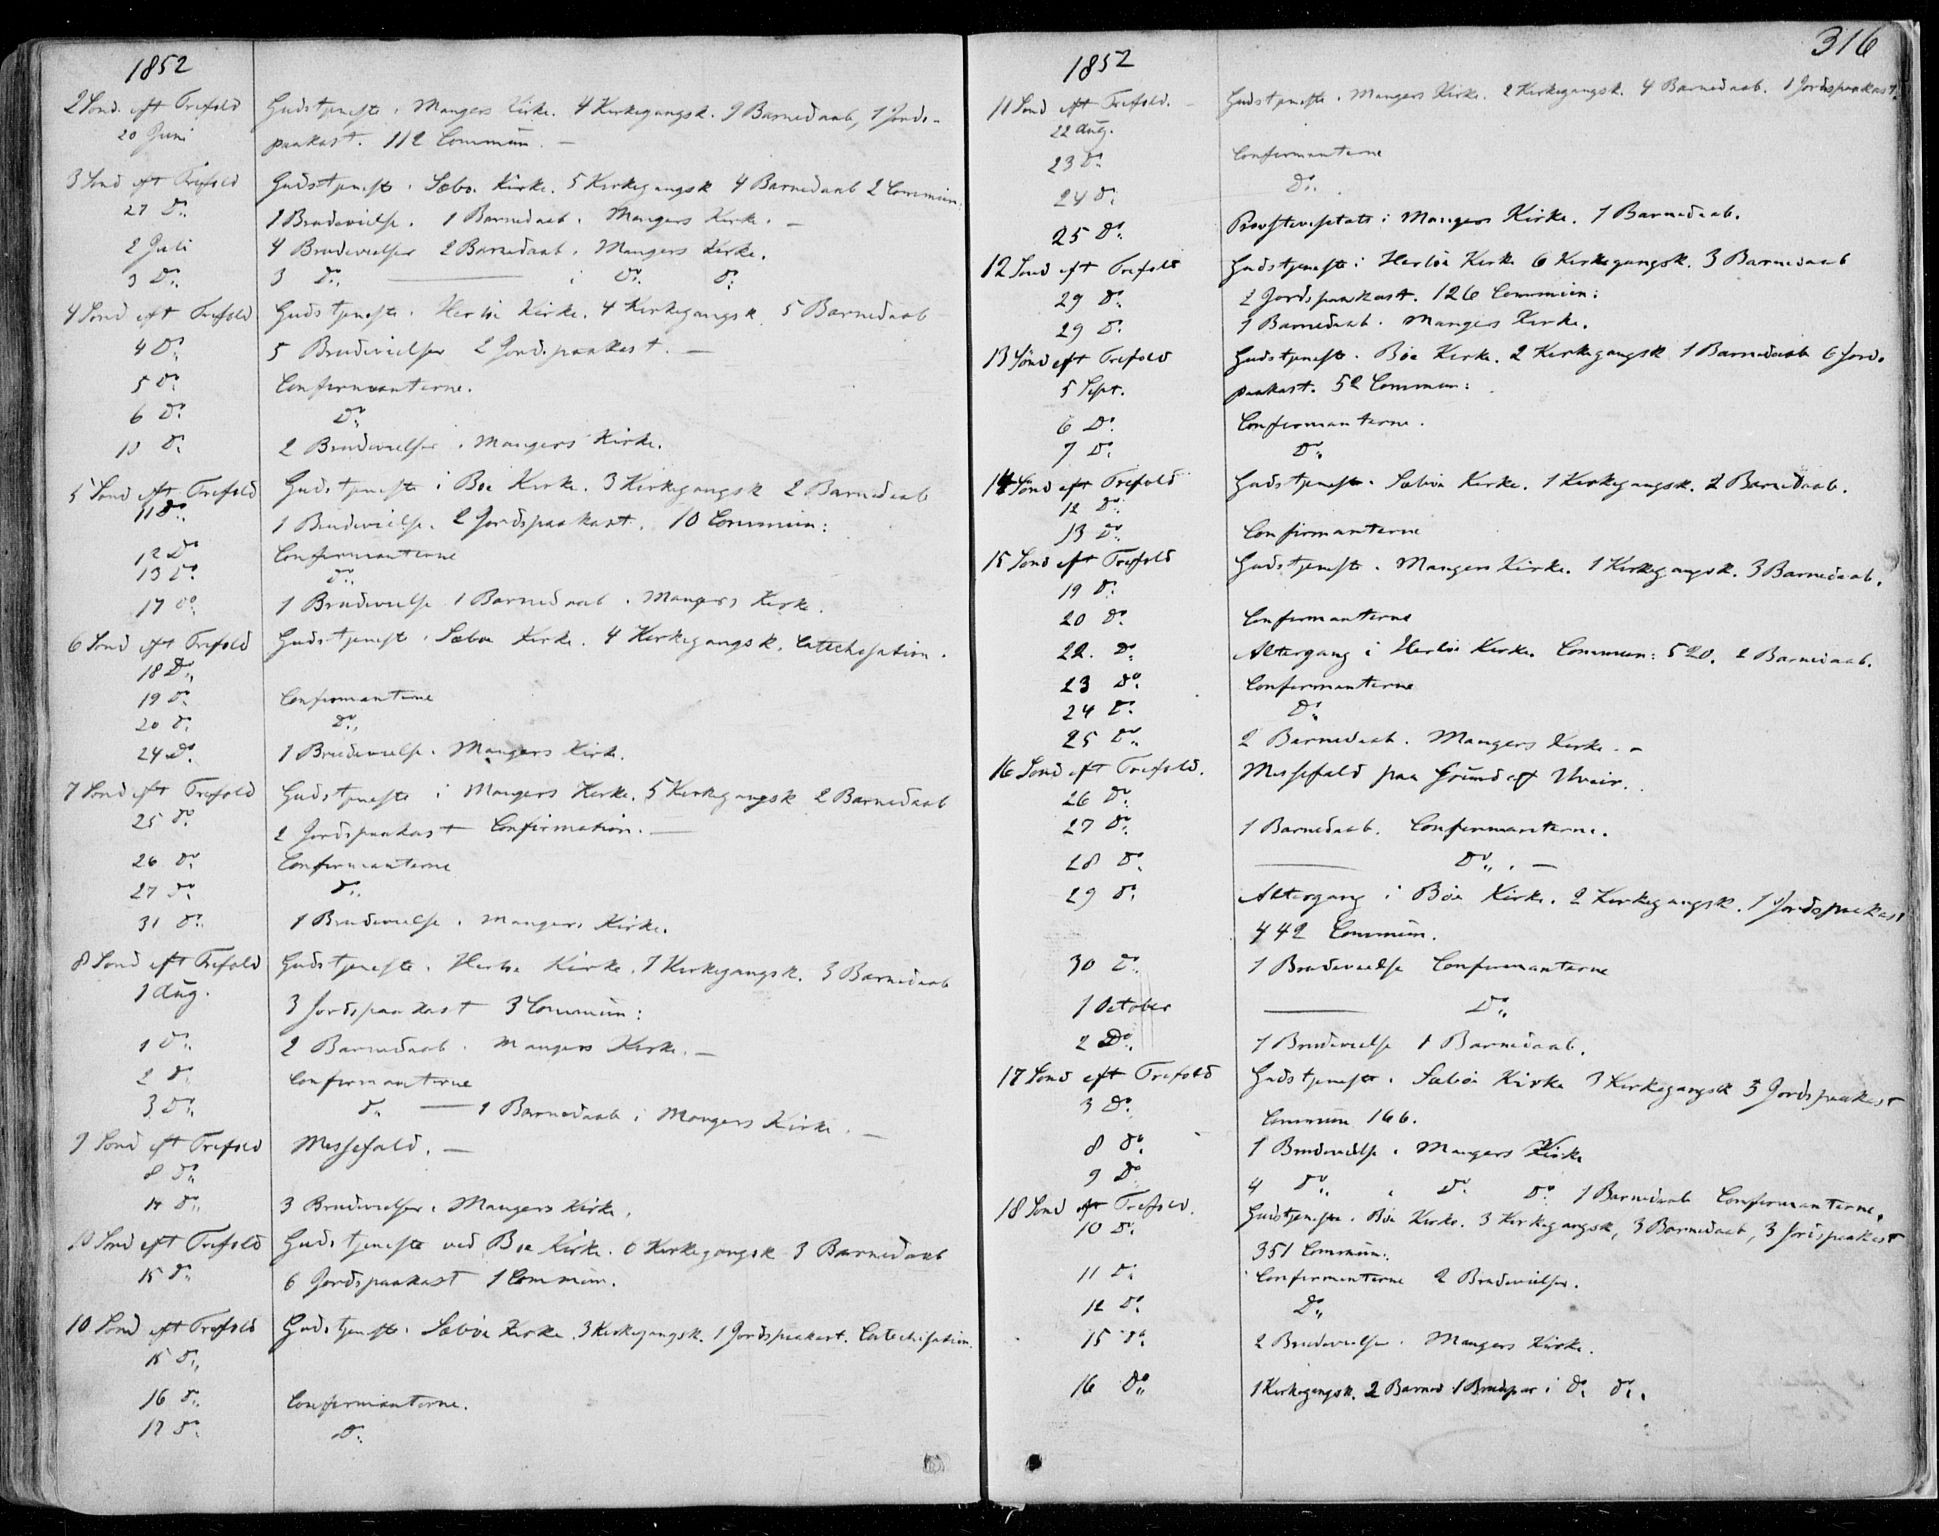 1852
2 Sond. eft Trefold Gudstjeneste i Mangers Kirke. 4 Kirkegangsk. 9 Barnedaab, 1 Jords-
20 Juni paakast. 112 Commun. —
3 Sond eft Trefold Gudstjeneste i Sæbøe Kirke. 5 Kirkegangsk 4 Barnedaab 2 Commun:
27 Do. 1 Brudevielse. 1 Barnedaab i Mangers Kirke. —
2 Juli 4 Brudevielser 2 Barnedaab i Mangers Kirke.
3 Do. 3 Do. — i Do. Do.
4 Sond eft Trefold Gudstjeneste i Herløe Kirke. 4 Kirkegangsk. 5 Barnedaab
4 Do. 5 Brudevielser 2 Jordspaakast. —
5 Do. Confirmanterne.
6 Do. Do.
10 Do. 2 Brudevielser i Mangers Kirke.
5 Sond eft Trefold Gudstjeneste i Bøe Kirke. 3 Kirkegangsk 2 Barnedaab
11 Do. 1 Brudevielse. 2 Jordspaakast. 10 Commun:
12 Do Confirmanterne
13 Do. Do.
17 Do. 1 Brudevielse 1 Barnedaab i Mangers Kirke.
6 Sond eft Trefold Gudstjeneste i Sæbøe Kirke. 4 Kirkegangsk. Catechisation.
18 Do.
19 Do. Confirmanterne
20 Do. Do.
24 Do. 1 Brudevielse i Mangers Kirke.
7 Sond eft Trefold Gudstjeneste i Mangers Kirke. 5 Kirkegangsk 2 Barnedaab
25 Do. 2 Jordspaakast Confirmation. —
26 Do. Confirmanterne
27 Do. Do.
31 Do. 1 Brudevielse i Mangers Kirke.
8 Sond eft Trefold Gudstjeneste i Herløe Kirke. 7 Kirkegangsk. 3 Barnedaab
1 Aug. 3 Jordspaakast 3 Commun:
1 Do. 2 Barnedaab i Mangers Kirke. —
2 Do. Confirmanterne
3 Do. Do. — 1 Barnedaab i Mangers Kirke. —
9 Sond eft Trefold Messefald. —
8 Do.
14 Do. 3 Brudevielser i Mangers Kirke.
10 Sond eft Trefold Gudstjeneste ved Bøe Kirke. 6 Kirkegangsk 3 Barnedaab
15 Do. 6 Jordspaakast 1 Commun.
10 Sond eft Trefold Gudstjeneste i Sæbøe Kirke. 3 Kirkegangsk. 1 Jordspaakast. Catechisation.
15 Do.
16 Do. Confirmanterne.
17 Do. Do.
316
1852
11 Sond eft Trefold. Gudstjeneste i Mangers Kirke. 2 Kirkegangsk. 4 Barnedaab. 1 Jordspaakast.
22 Aug.
23 Do. Confirmanterne
24 Do. Do.
25 Do. Provstevisitats i Mangers Kirke. 1 Barnedaab.
12 Sond eft Trefold Gudstjeneste i Herløe Kirke 6 Kirkegangsk. 3 Barnedaab
29 Do. 2 Jordspaakast. 126 Commun:
29 Do. 1 Barnedaab i Mangers Kirke.
13 Sond eft Trefold Gudstjeneste i Bøe Kirke. 2 Kirkegangsk 1 Barnedaab 6 Jords
5 Sept. paakast. 52 Commun:
6 Do. Confirmanterne.
7 Do. Do.
14 Sond eft Trefold Gudstjeneste i Sæbøe Kirke. 1 Kirkegangsk. 2 Barnedaab.
12 Do.
13 Do. Confirmanterne
15 Sond eft Trefold Gudstjeneste i Mangers Kirke. 1 Kirkegangsk. 3 Barnedaab.
19 Do.
20 Do. Confirmanterne
22. Do. Altergang i Herløe Kirke. Commun: 520. 2 Barnedaab.
23 Do. Confirmanterne
24 Do. Do.
25 Do. 2 Barnedaab i Mangers Kirke. —
16 Sond eft Trefold. Messefald paa Grund af Uveir.
26 Do.
27 Do. 1 Barnedaab. Confirmanterne.
28 Do. — Do. —
29 Do. Altergang i Bøe Kirke. 2 Kirkegangsk. 1 Jordspaakast
442 Commun.
30 Do. 1 Brudevielse Confirmanterne
1 October — Do.
2 Do. 1 Brudevielse 1 Barnedaab.
17 Sond eft Trefold Gudstjeneste i Sæbøe Kirke 3 Kirkegangsk 5 Jordspaakast
3 Do. Commun 166.
8 Do. 1 Brudevielse i Mangers Kirke
9 Do 4 Do. i Do. Do. 1 Barnedaab Confirmanterne.
18 Sond eft Trefold. Gudstjeneste i Bøe Kirke. 3 Kirkegangsk, 3 Barnedaab, 3 Jordspaakast
10 Do. 351 Commun:
11 Do. Confirmanterne 2 Brudevielser.
12 Do. Do.
15 Do. 2 Brudevielser i Mangers Kirke.
16 Do 1 Kirkegangsk. 2 Barned 1 Brudpar i Do. Do.